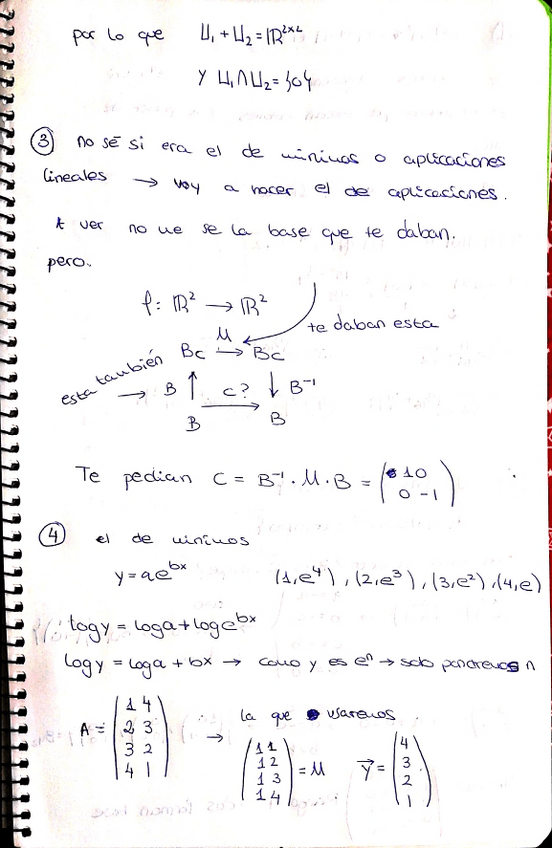 por lo que U₁ + U₂ = ℝ²ˣ²
y U₁ ∩ U₂ = {0}
③ no sé si era el de mínimos o aplicaciones
lineales → voy a hacer el de aplicaciones.
A ver no me se la base que te daban.
pero.
f: ℝ² → ℝ²
te daban esta
M
esta también Bc → Bc
→ B ↑ C? ↓ B⁻¹
B → B
Te pedían C = B⁻¹ · M · B = (1 0
0 -1)
④ el de mínimos
y = ae^bx (1,e⁴), (2,e³), (3,e²), (4,e)
logy = loga + loge^bx
logy = loga + bx → como y es eⁿ → solo pondremos n
la que usaremos
A = (1 4
2 3
3 2
4 1)
→ (1 1
1 2
1 3
1 4) = M
y⃗ = (4
3
2
1)